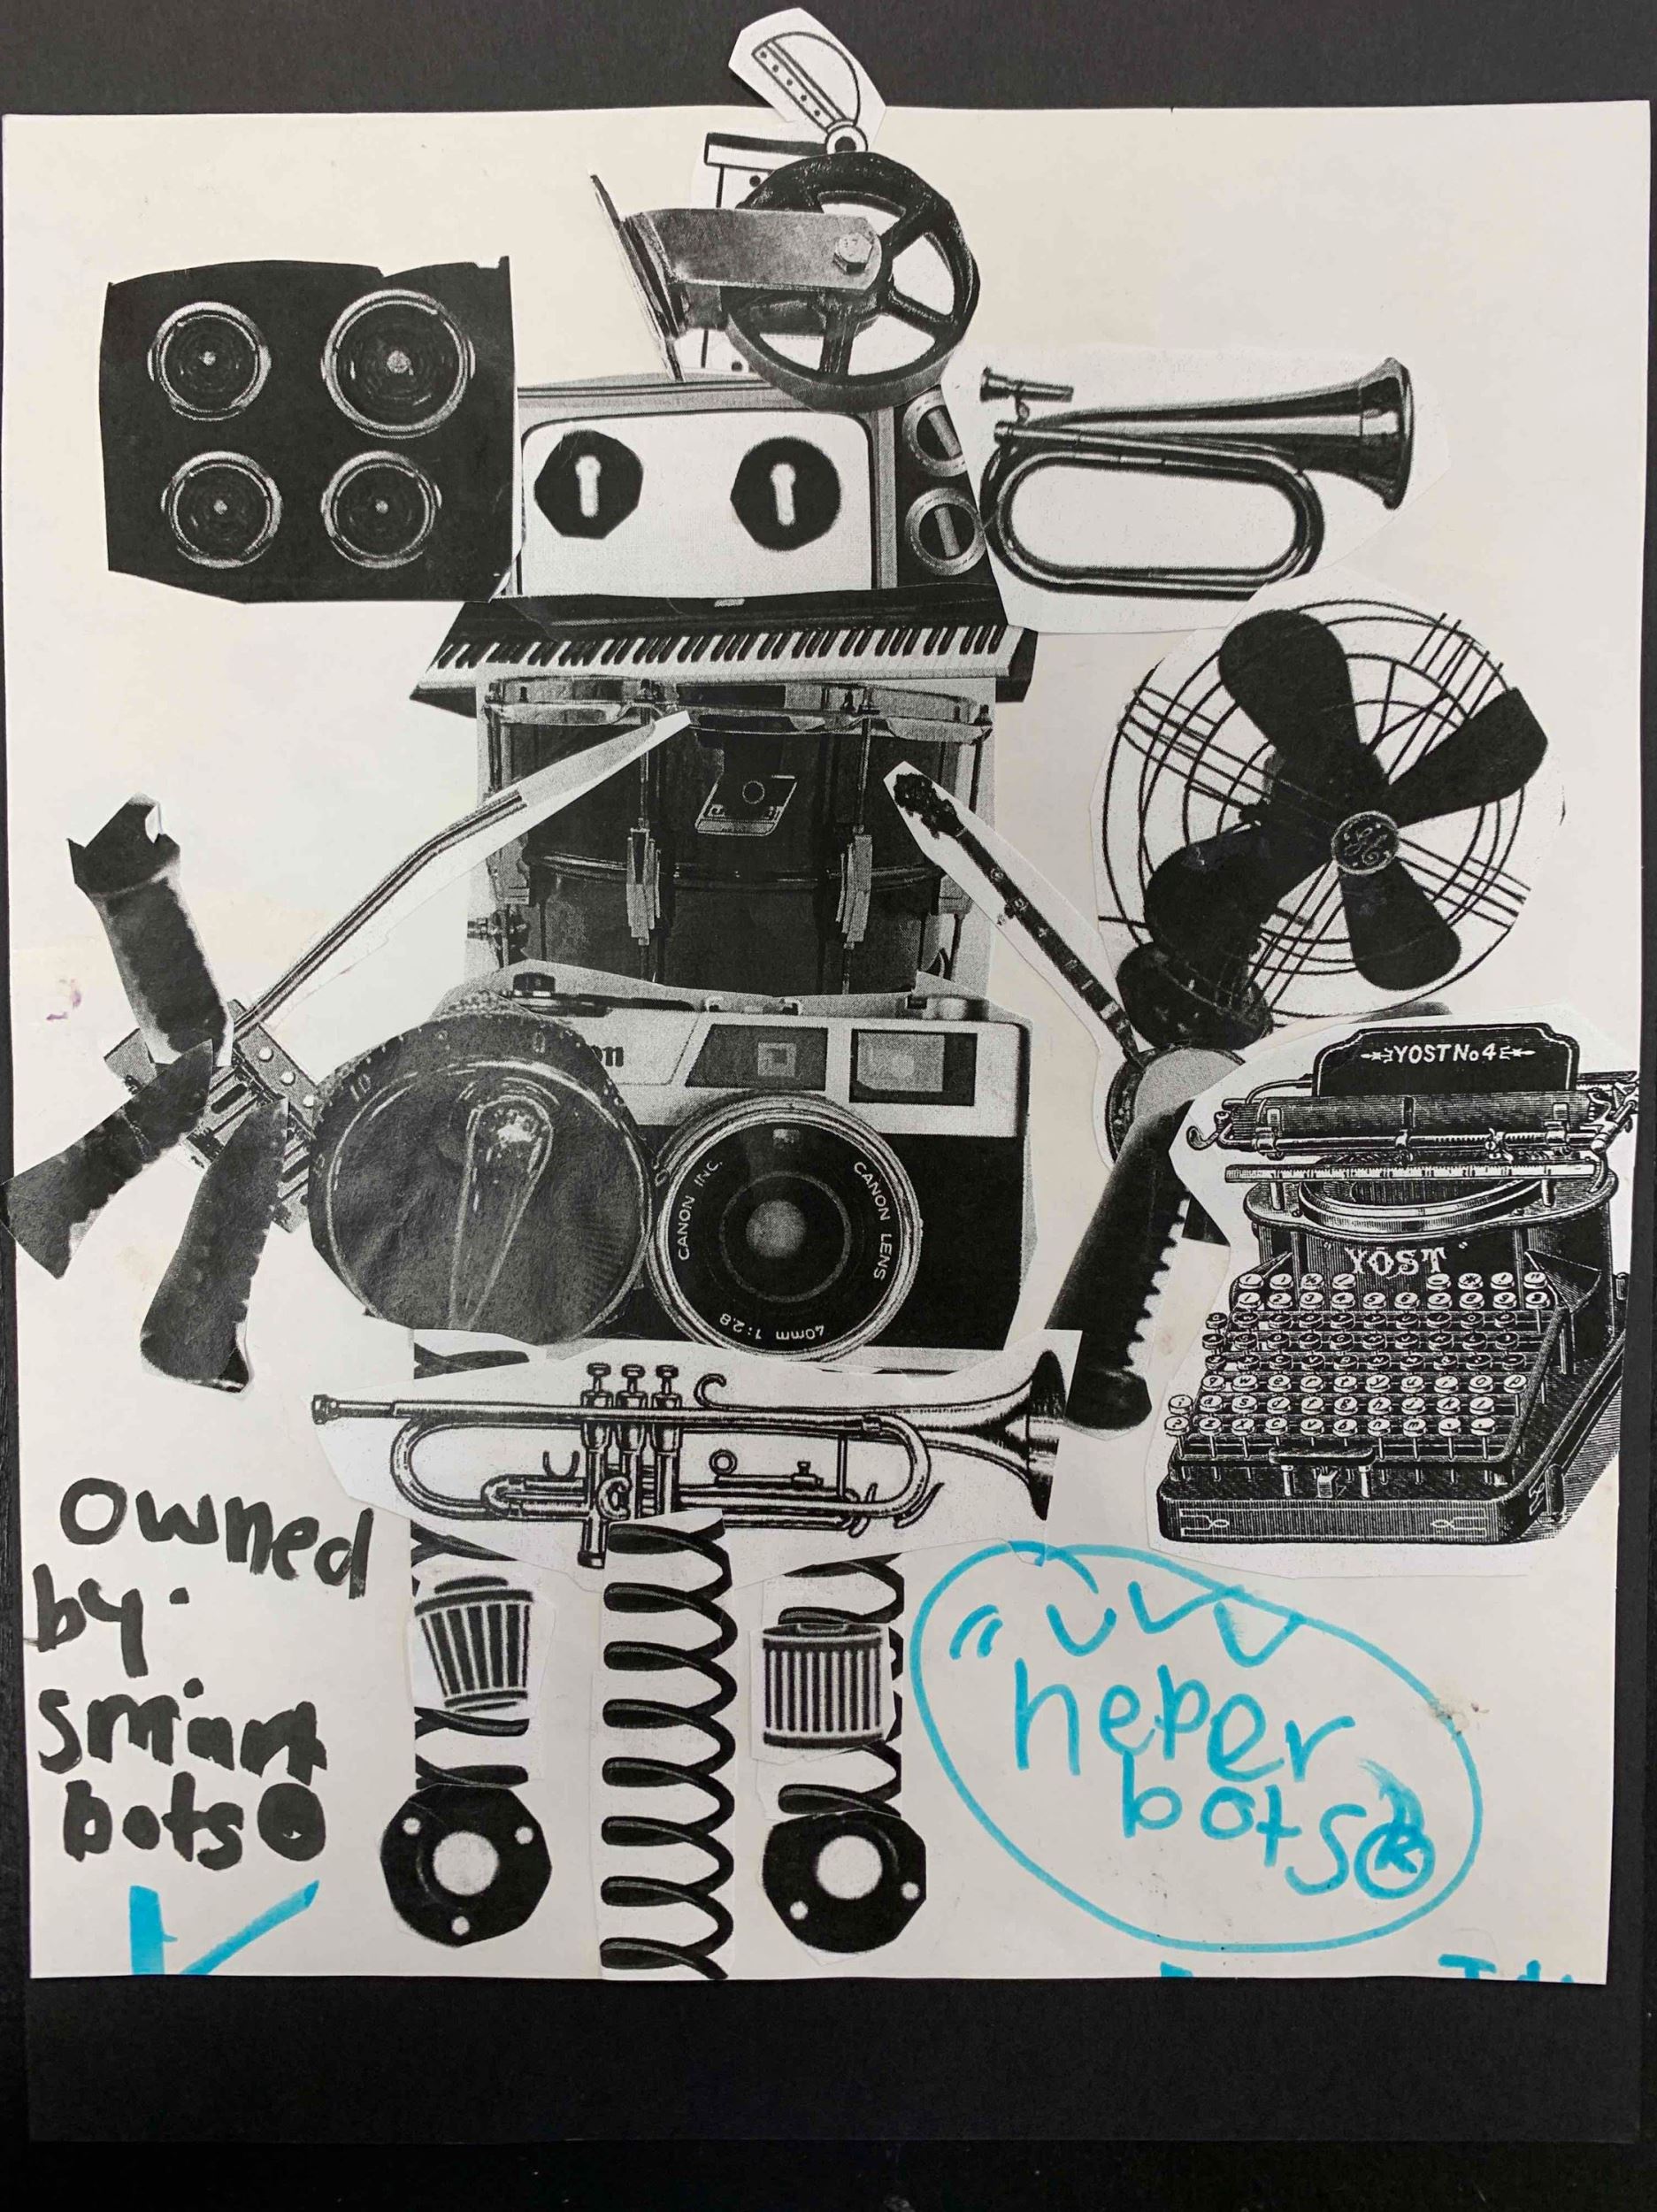 YOST No 4
"YOST"
on
10
0
CANON INC.
CANON LENS
40mm 1:2.8
owned
by:
smart
bots
"heper
bots®